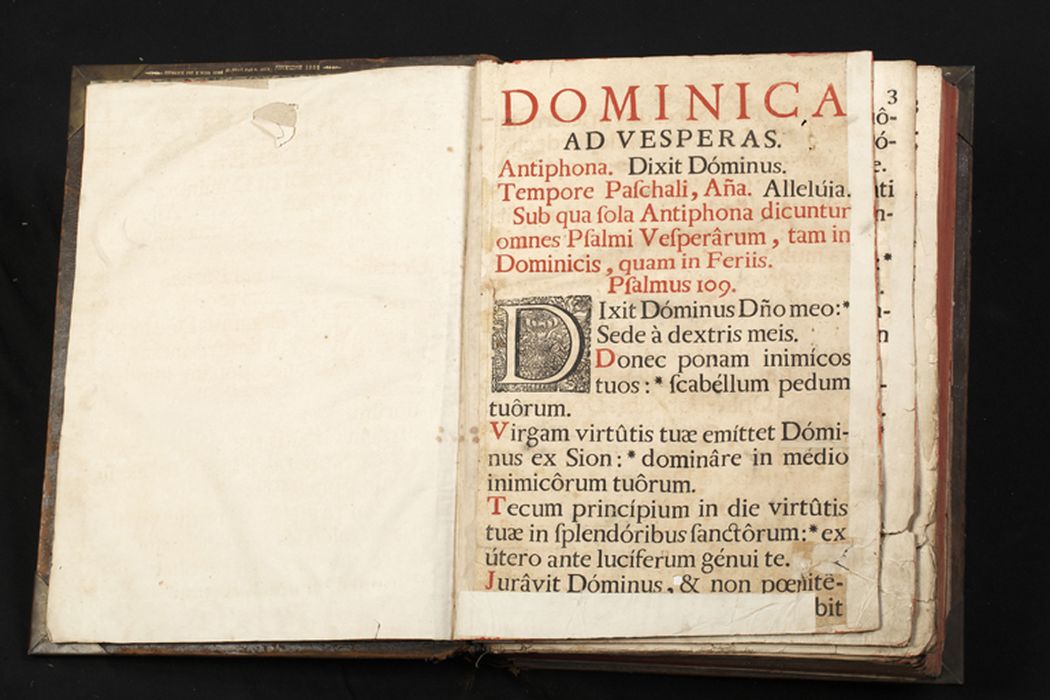 DOMINICA
AD VESPERAS.
Antiphona. Dixit Dóminus.
Tempore Paſchali, Aña. Allelúia.
Sub qua ſola Antiphona dicuntur
omnes Pſalmi Veſperârum, tam in
Dominicis, quam in Feriis.
Pſalmus 109.
DIxit Dóminus Dño meo:*
Sede à dextris meis.
Donec ponam inimícos
tuos:* ſcabéllum pedum
tuôrum.
Virgam virtûtis tuæ emíttet Dómi-
nus ex Sion:* dominâre in médio
inimicôrum tuôrum.
Tecum princípium in die virtûtis
tuæ in ſplendóribus ſanctôrum:* ex
útero ante lucíferum génui te.
Jurâvit Dóminus, & non pœnitē-
bit
3